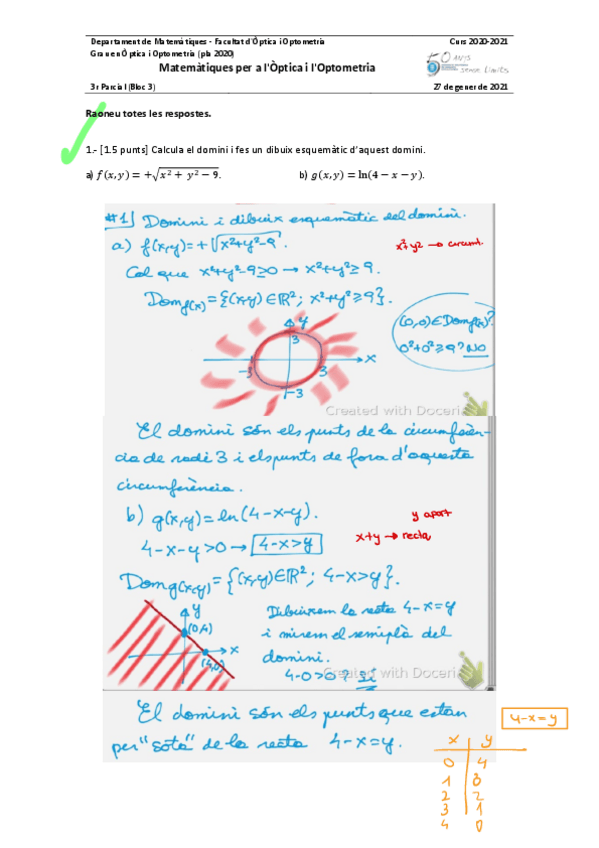 Departament de Matemàtiques - Facultat d'Òptica i Optometria Curs 2020-2021
Grau en Òptica i Optometria (pla 2020)
Matemàtiques per a l'Òptica i l'Optometria
50 ANYS
3r Parcial (Bloc 3) 27 de gener de 2021
Raoneu totes les respostes.
1.- [1.5 punts] Calcula el domini i fes un dibuix esquemàtic d'aquest domini.
a) f(x,y) = +√(x² + y² − 9). b) g(x,y) = ln(4 − x − y).
#1) Domini i dibuix esquemàtic del domini.
a) f(x,y)=+√(x²+y²-9). x²+y² → circumf.
Cal que x²+y²-9≥0 → x²+y²≥9.
Domf(x)={(x,y)∈ℝ²; x²+y²≥9}.
(0,0)∈Domf(x)?
0²+0²≥9? NO
y
3
-3 3 x
-3
Created with Doceri
El domini són els punts de la circumferèn-
cia de radi 3 i els punts de fora d'aquesta
circumferència.
b) g(x,y)=ln(4-x-y). y apart
4-x-y>0 → 4-x>y x+y → recta
Domg(x,y)={(x,y)∈ℝ²; 4-x>y}.
y
(0,4)
x
(4,0)
Dibuixem la recta 4-x=y
i mirem el semiplà del
domini.
4-0>0? Sí
Created with Doceri
El domini són els punts que estan
per "sota" de la recta 4-x=y.
4-x=y
x y
0 4
1 3
2 2
3 1
4 0